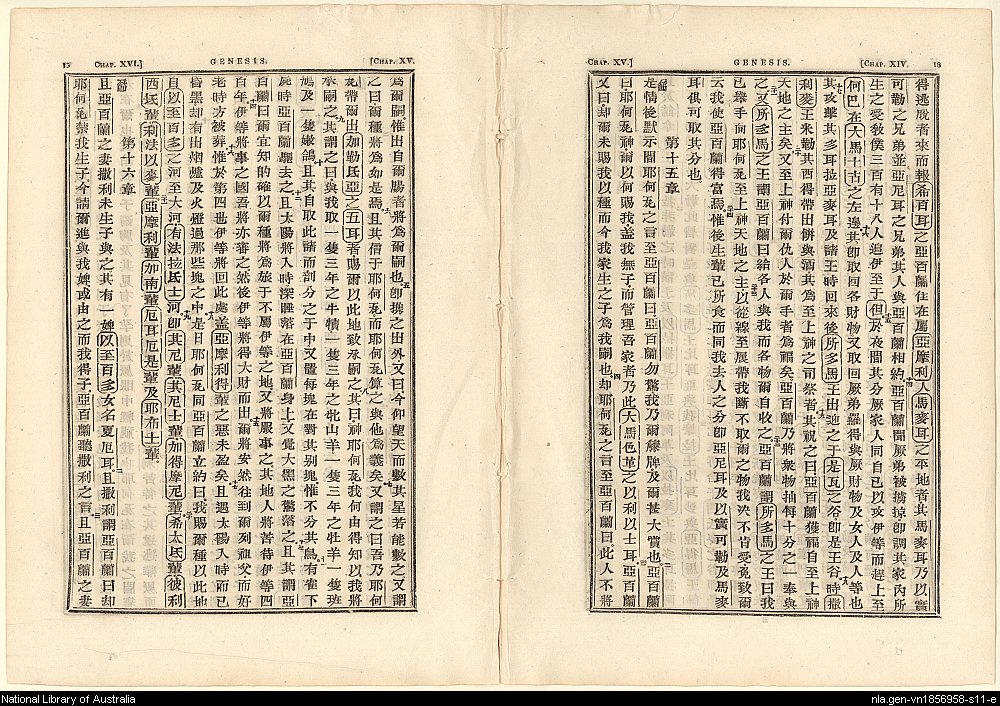 13 [CHAP. XIV. GENESIS. CHAP. XV.]
得逃脱者來而報希百耳之亞百蘭住在屬亞摩利人馬麥耳之平地者其馬麥耳乃以實
可勒之兄弟並亞尼耳之兄弟其人與亞百蘭相約亞百蘭聞厥弟被擄掠卽調其家內所
生之受教僕三百有十八人追伊至于但於夜間其分厥家人同自已以攻伊等而趕上至
何巴在大馬士古之左邊其卽取回各財物又取回厥弟羅得與厥財物及女人及人等也
其攻擊其多耳拉亞麥耳及諸王時回來後所多馬王出迎之于是瓦之谷卽是王谷時撒
利麥王米勒其西得帶出餅與酒其爲至上神之司祭者其祝之曰亞百蘭獲福自至上神
天地之主矣又至上神付爾仇人於爾手者爲福矣亞百蘭乃將衆物抽每十分之一奉與
之又所多馬之王謂亞百蘭曰給各人與我而各物爾自收之亞百蘭謂所多馬之王曰我
已舉手向耶何瓦至上神天地之主以從線至屐帶我斷不取爾之物我决不肯受免致爾
云我使亞百蘭得富焉惟後生輩已所食而同我去人之分卽亞尼耳及以實可勒及馬麥
耳俱可取其分也
第十五章
是情後默示間耶何瓦之言至亞百蘭曰亞百蘭勿驚我乃爾籐牌及爾甚大賞也亞百蘭
曰耶何瓦神歟爾何賜我蓋我無子而管理吾家者乃此大馬色革之以利以士耳亞百蘭
又曰却爾未賜我以種而今我家生之子爲我嗣也却耶何瓦之言至亞百蘭曰此人不將
[CHAP. XV. GENESIS. CHAP. XVI.]
爲爾嗣惟出自爾腸者將爲爾嗣也卽攜之出外又曰今仰望天而數其星若能數之又謂
之曰爾種將爲如是焉且其信于耶何瓦而耶何瓦算之與他爲義矣又謂之曰吾乃耶何
瓦帶爾出加勒氐亞之五耳者賜爾以此地致承嗣之其曰神耶何瓦我何由得知以我將
承嗣之其謂之曰與我取一隻三年之牛犢一隻三年之牝山羊一隻三年之牡羊一隻班
鳩及一隻嫩鴿且其自取此諸而剖分之于中又置每塊在對其别塊惟不分其鳥有雀下
屍時亞百蘭驅去之且太陽將入時深睡落在亞百蘭身上又覺大黑之驚落之且其謂亞
百蘭曰爾宜知的確以爾種將爲旅于不屬伊等之地又將服事之其地人將苦待伊等四
百年伊等將事之國吾將亦審之然後伊等將得大財而出爾將安然往到爾列祖父而好
老時方被葬惟於第四世伊等將回此處蓋亞摩利得輩之惡未盈矣且遇太陽入時而已
昏黑却有出烟爐及火燈過那些塊之中是日耶何瓦同亞百蘭立約曰我賜爾種以此地
自以至百多之河至大河有法拉氐士河卽其尼輩其尼士輩加得摩尼輩希太氐輩彼利
西氐輩利法以麥輩亞摩利輩加南輩厄耳厄是輩及耶布士輩
第十六章
且亞百蘭之妻撒利未生子與之其有一婢以至百多女名夏厄耳且撒利謂亞百蘭曰却
耶何瓦禁我生子今請爾進與我婢或由之而我得子亞百蘭聽撒利之言且亞百蘭之妻
National Library of Australia
nla.gen-vn1856958-s11-e